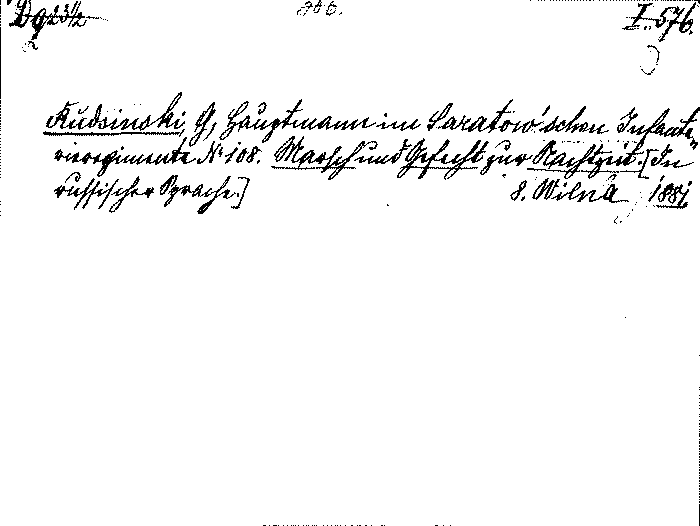 Dq 23 1/2 I. 576.
Kudsinski, G, Hauptmann im Saratow'schen Infante-
rieregimente No 108. Marsch und Gefecht zur Nachtzeit. [In
russischer Sprache.] 8. Wilna 1881.